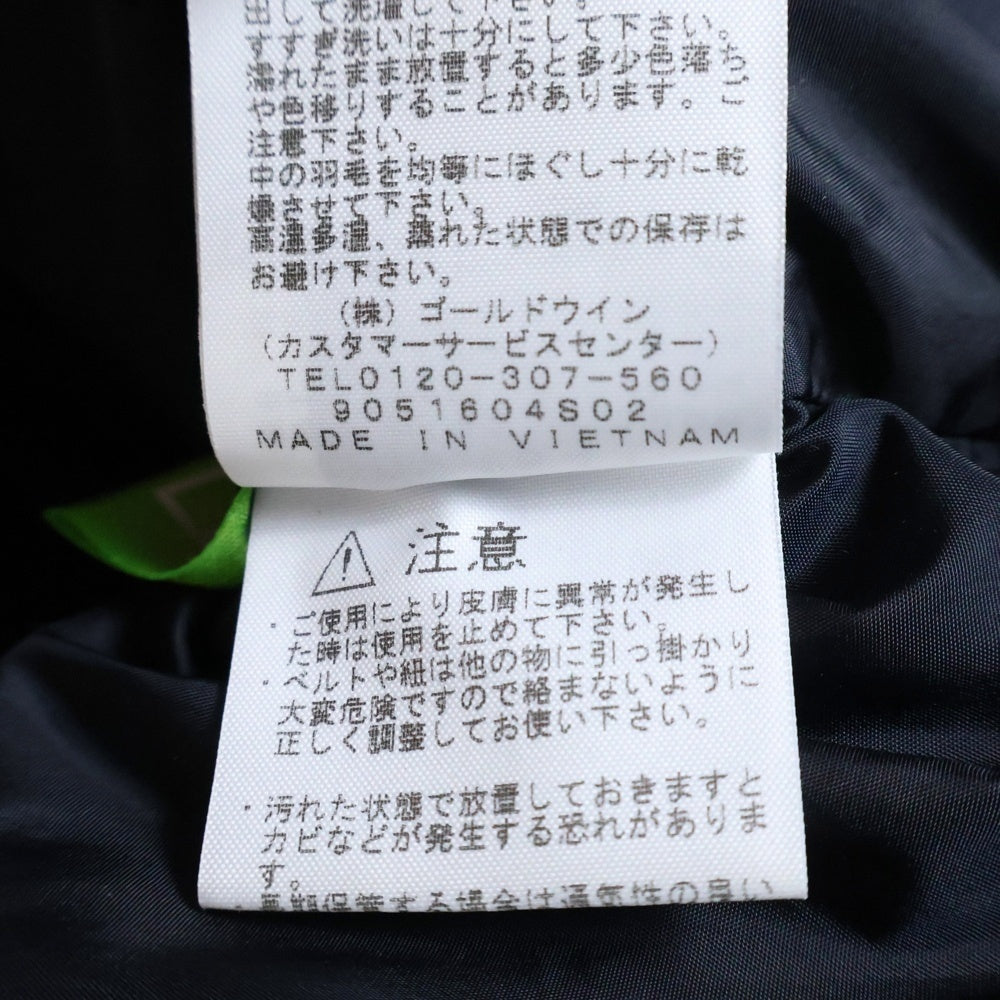 出して洗濯して下さい。
すすぎ洗いは十分にして下さい。
濡れたまま放置すると多少色落ち
や色移りすることがあります。ご
注意下さい。
中の羽毛を均等にほぐし十分に乾
燥させて下さい。
高温多湿、蒸れた状態での保存は
お避け下さい。
(株)ゴールドウイン
(カスタマーサービスセンター)
TEL0120-307-560
9051604S02
MADE IN VIETNAM
注意
・ご使用により皮膚に異常が発生し
た時は使用を止めて下さい。
・ベルトや紐は他の物に引っ掛かり
大変危険ですので絡まないように
正しく調整してお使い下さい。
・汚れた状態で放置しておきますと
カビなどが発生する恐れがありま
す。
・長期保管する場合は通気性の良い